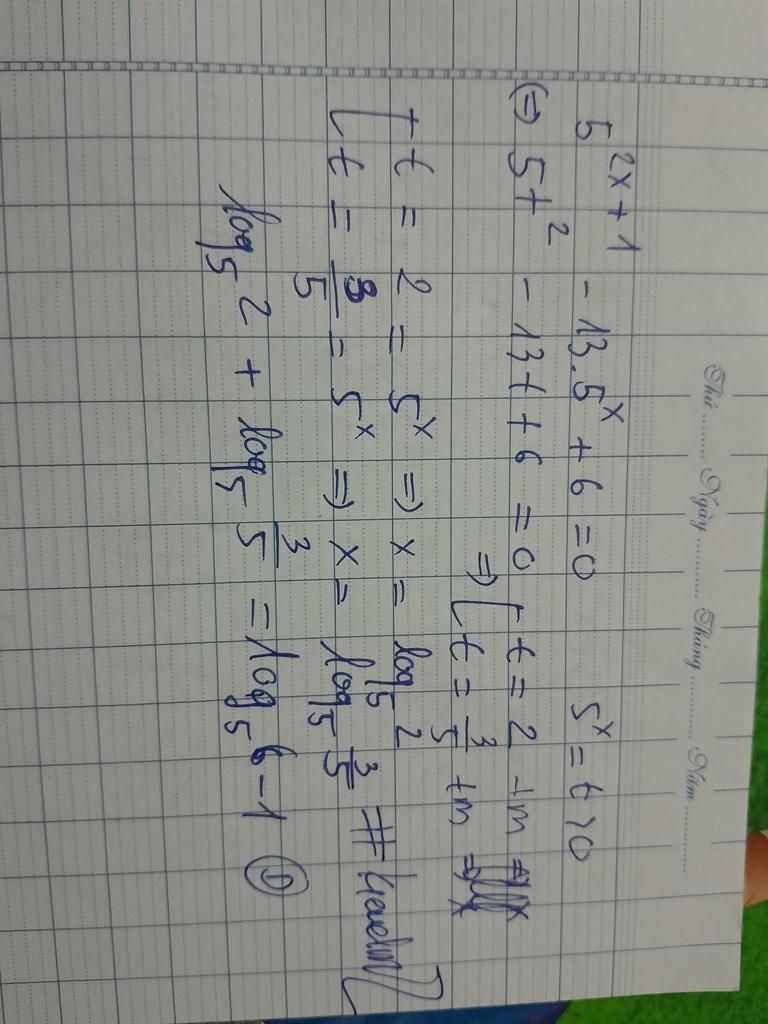 Thứ ........ Ngày ........... Tháng ........... Năm ............
5^{2x+1} - 13.5^x + 6 = 0    5^x = t > 0
(=) 5t^2 - 13t + 6 = 0 => [ t = 2 +m
t = 3/5 +m
[ t = 2 = 5^x => x = log_5 2
t = 3/5 = 5^x => x = log_5 3/5 #
log_5 2 + log_5 3/5 = log_5 6 - 1